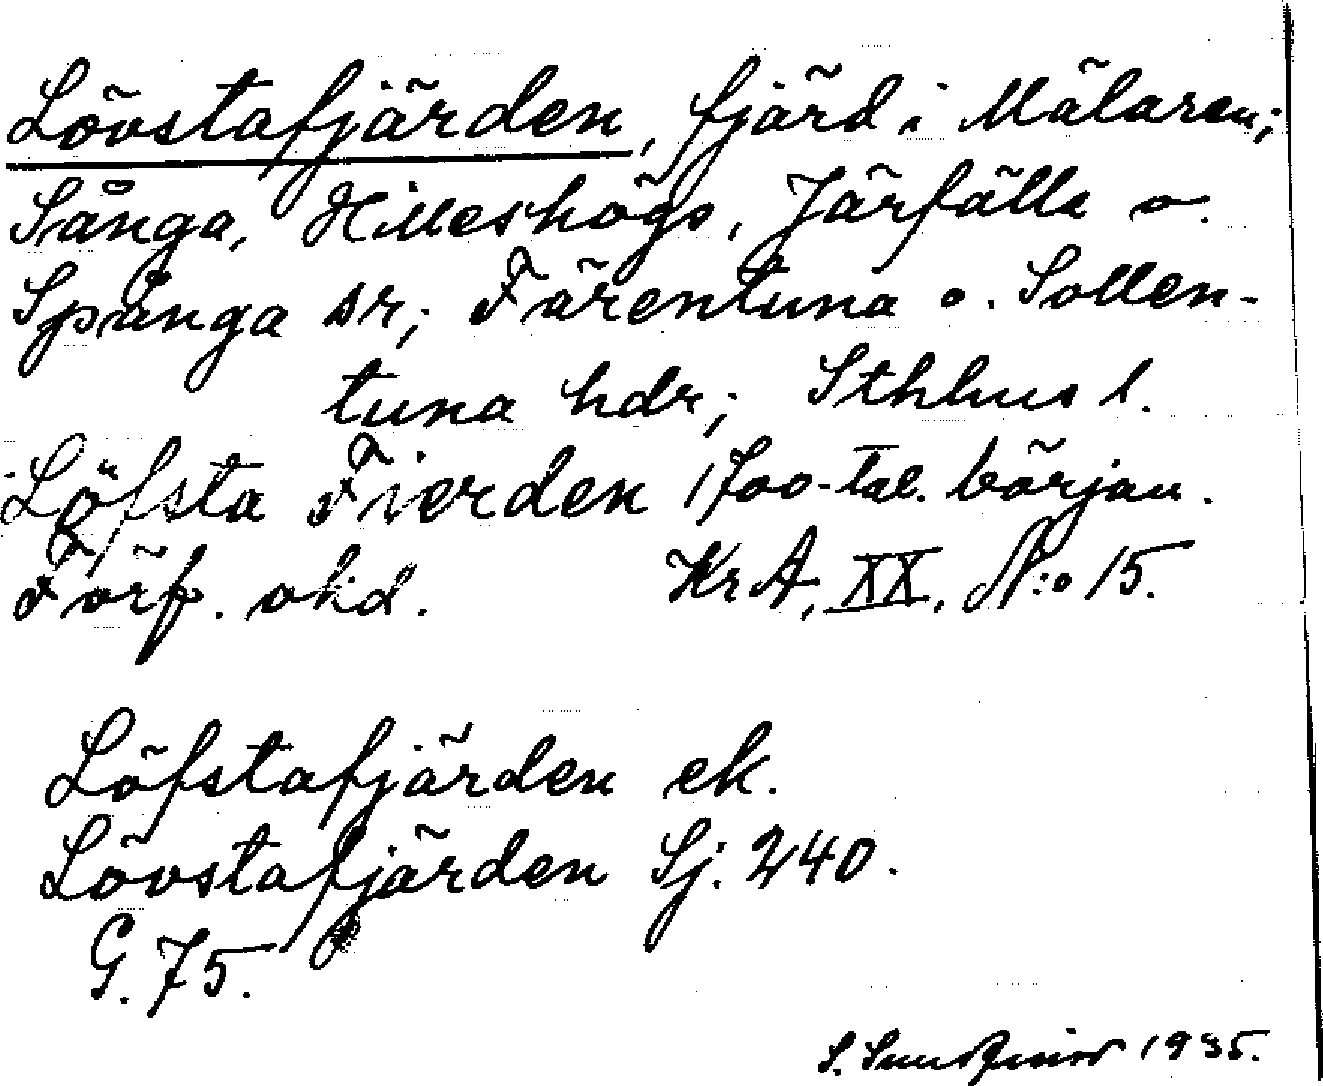 Lövstafjärden, fjärd i Mälaren;
Sånga, Hilleshögs, Järfälla o.
Spånga sr; Färentuna o. Sollen-
tuna hdr; Sthlms l.
Löfsta Fierden 1700-tal. början.
Förf. okd. KrA, XX, N:o 15.
Löfstafjärden ek.
Lövstafjärden Sj. 240.
G. 75.
S. 1935.